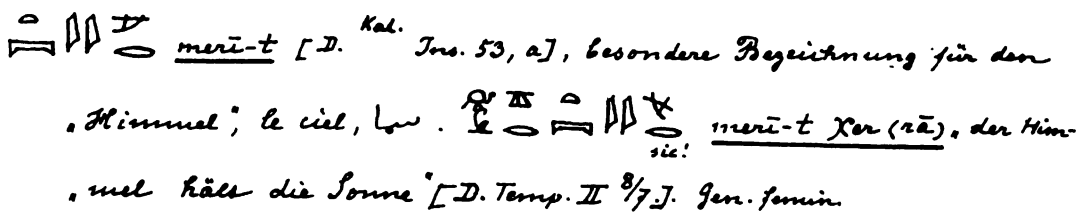 merī-t [D. Kal. Ins. 53, a], besondere Bezeichnung für den
„Himmel“, le ciel, . merī-t χer (rā) „der Him-
sic!
„mel hält die Sonne“ [D. Temp. II 8/7.]. Gen. femin.